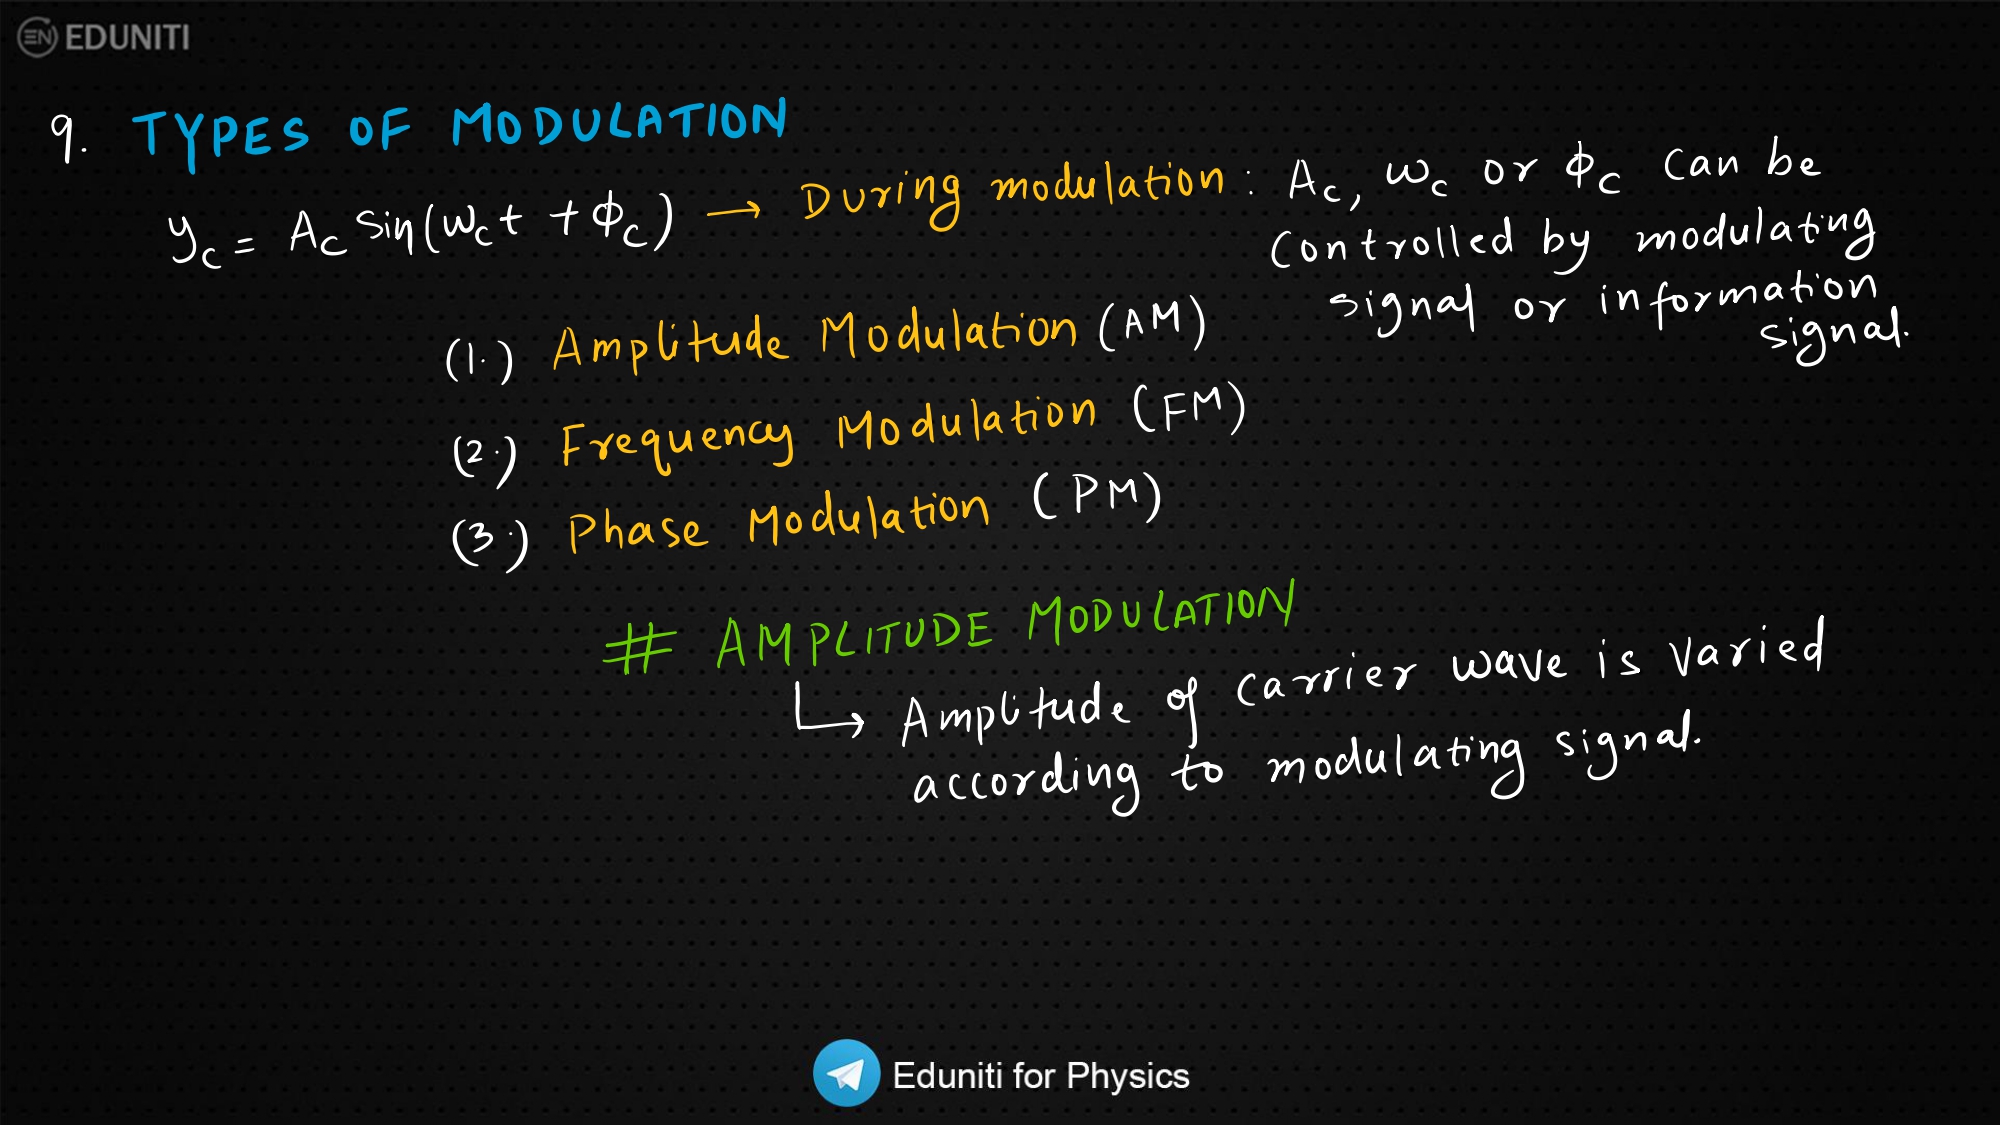 EN EDUNITI
9. TYPES OF MODULATION
y_c = A_c Sin(ω_c t + ϕ_c) → During modulation : A_c, ω_c or ϕ_c can be
controlled by modulating
signal or information
signal.
(1.) Amplitude Modulation (AM)
(2.) Frequency Modulation (FM)
(3.) Phase Modulation (PM)
# AMPLITUDE MODULATION
↳ Amplitude of carrier wave is varied
according to modulating signal.
Eduniti for Physics